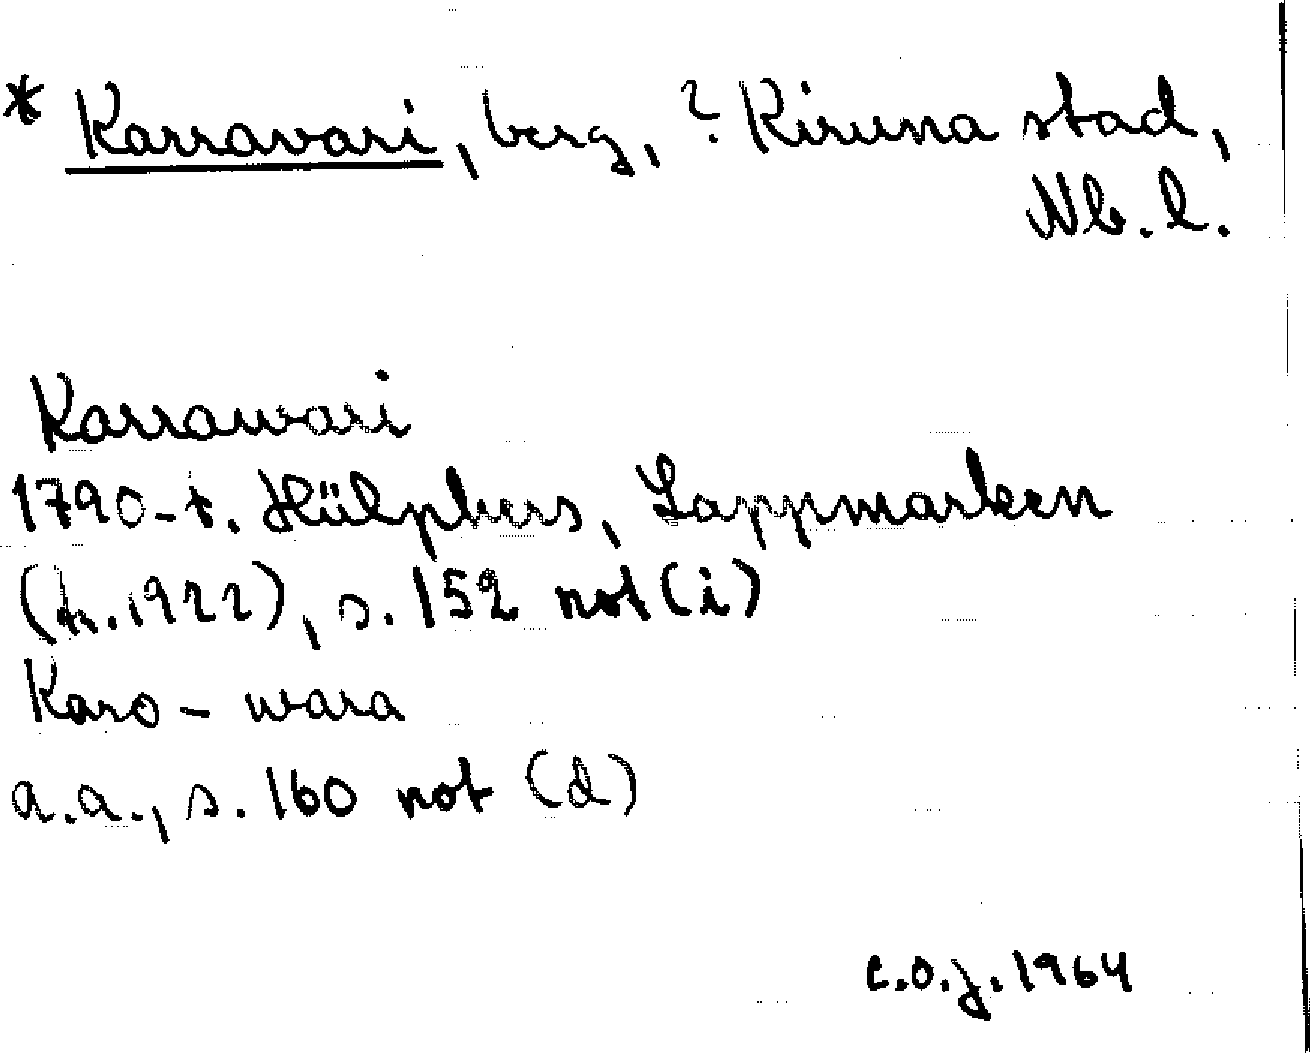 * Karravari, berg, ? Kiruna stad,
Nb. l.
Karrawari
1790-t. Hülphers, Lappmarken
(tr. 1922), s. 152 not (i)
Karo - wara
a.a., s. 160 not (d)
C.O.J. 1964